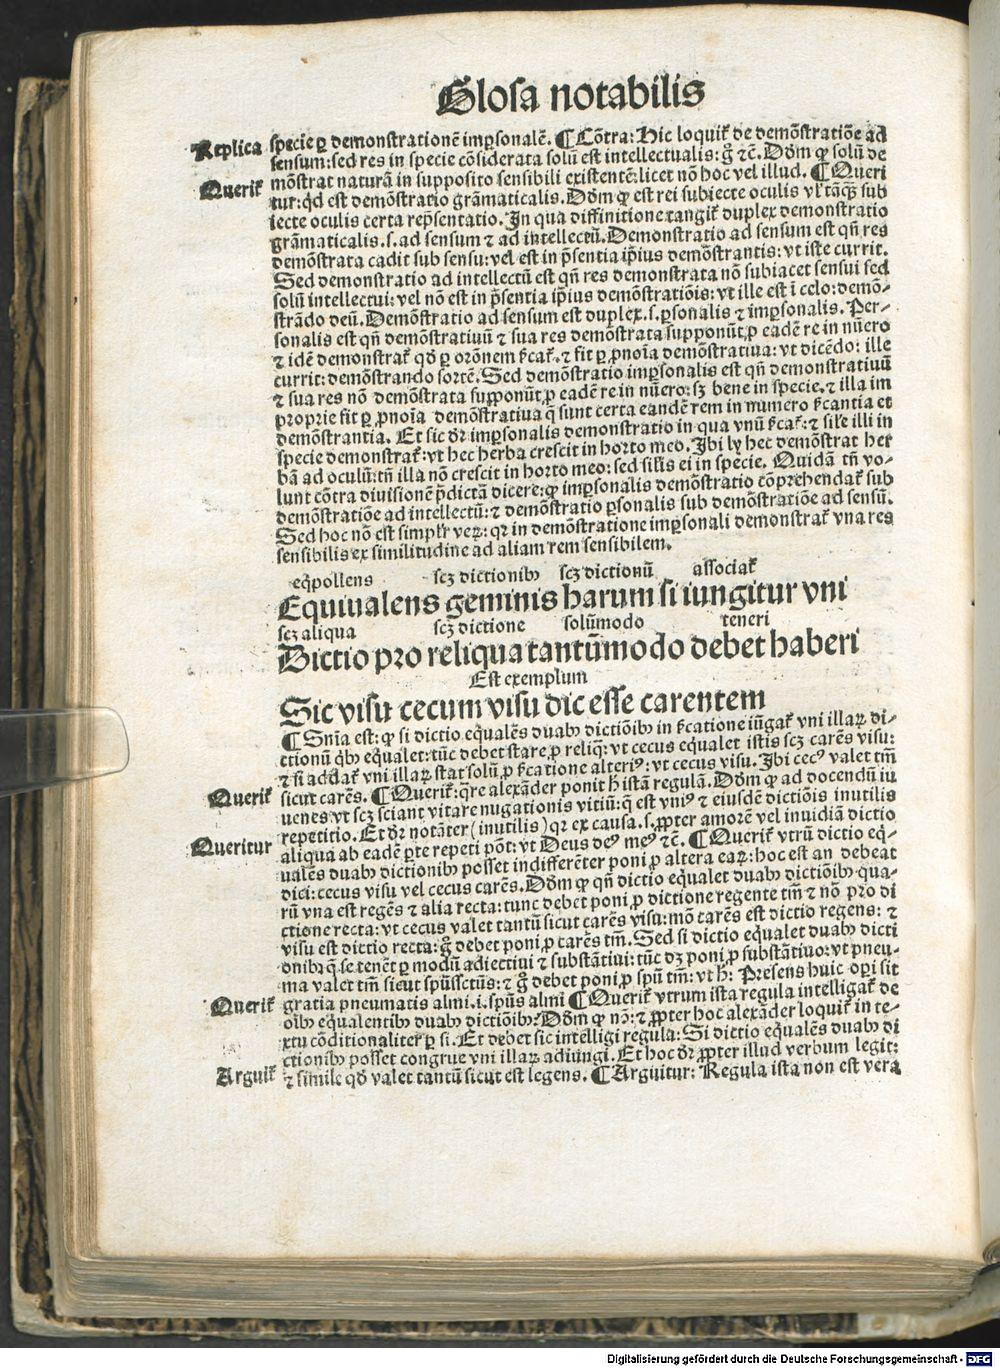 Glosa notabilis
Replica
specie ꝑ demonstrationē imꝑsonalē. ¶ Cōtra: Hic loquit᷑ de demōstratiōe ad
sensum: sed res in specie cōsiderata solū est intellectualis: g̊ ⁊c̄. Dōm ꝙ solū de
mōstrat naturā in supposito sensibili existentē: licet nō hoc vel illud. ¶ Queri
Querit᷑
tur: qd est demōstratio grāmaticalis. Dōm ꝙ est rei subiecte oculis vl' tāꝗ sub
iecte oculis certa rep̄sentatio. In qua diffinitione tangit᷑ duplex demonstratio
grāmaticalis .s. ad sensum ⁊ ad intellectū. Demonstratio ad sensum est qn̄ res
demōstrata cadit sub sensu: vel est in p̄sentia ip̄ius demōstrantis: vt iste currit.
Sed demonstratio ad intellectū est qn̄ res demonstrata nō subiacet sensui sed
solū intellectui: vel nō est in p̄sentia ip̄ius demōstratiōis: vt ille est ī celo: demō-
strādo deū. Demōstratio ad sensum est duplex .s. ꝑsonalis ⁊ imꝑsonalis. Per-
sonalis est qn̄ demōstratiuū ⁊ sua res demōstrata supponūt ꝓ eadē re in nūero
⁊ idē demonstrat᷑ qd̄ ꝑ orōnem s̄cat᷑. ⁊ fit ꝑ ꝓnoīa demōstratiua: vt dicēdo: ille
currit: demōstrando sortē. Sed demōstratio imꝑsonalis est qn̄ demonstratiuū
⁊ sua res nō demōstrata supponūt ꝓ eadē re in nūero: sꝫ bene in specie. ⁊ illa im
proprie fit ꝑ ꝓnoīa demōstratiua q̄ sunt certa eandē rem in numero s̄cantia et
demōstrantia. Et sic dr̄ imꝑsonalis demōstratio in qua vnū s̄cat᷑: ⁊ sil'e illi in
specie demonstrat᷑: vt hec herba crescit in horto meo. Ibi ly hec demōstrat her
bā ad oculū: tn̄ illa nō crescit in horto meo: sed sil'is ei in specie. Quidā tn̄ vo-
lunt cōtra diuisionē p̄dictā dicere: ꝙ imꝑsonalis demōstratio cōprehendat᷑ sub
demōstratiōe ad intellectū: ⁊ demōstratio ꝑsonalis sub demōstratiōe ad sensū.
Sed hoc nō est simpl'r veꝝ: qꝛ in demōstratione imꝑsonali demonstrat᷑ vna res
sensibilis ex similitudine ad aliam rem sensibilem.
eq̄pollens scꝫ dictionibꝰ scꝫ dictionū associat᷑
Equiualens geminis harum si iungitur vni
scꝫ aliqua scꝫ dictione solūmodo teneri
Dictio pro reliqua tantūmodo debet haberi
Est exemplum
Sic visu cecum visu dic esse carentem
¶ Snīa est: ꝙ si dictio equalēs duabꝰ dictiōibꝰ in s̄catione iūgat᷑ vni illaꝝ di-
ctionū qͥbꝰ equalet: tūc debet stare ꝓ reliq̄: vt cecus equalet istis scꝫ carēs visu:
⁊ si addat᷑ vni illaꝝ stat solū ꝓ s̄catione alteriꝰ: vt cecus visu. Ibi cecꝰ valet tm̄
Querit᷑
sicut carēs. ¶ Querit᷑: qre alexāder ponit h̄ istā regulā. Dōm ꝙ ad docendū iu
uenes vt scꝫ sciant vitare nugationis vitiū: q̄ est vniꝰ ⁊ eiusdē dictiōis inutilis
repetitio. Et dr̄ notāter (inutilis) qꝛ ex causa .s. ꝓpter amorē vel inuidiā dictio
Queritur
aliqua ab eadē ꝑte repeti pōt: vt Deus deꝰ meꝰ ⁊c̄. ¶ Querit᷑ vtrū dictio eq̄-
ualēs duabꝰ dictionibꝰ posset indifferēter poni ꝓ altera eaꝝ: hoc est an debeat
dici: cecus visu vel cecus carēs. Dōm ꝙ qn̄ dictio equalet duabꝰ dictiōibꝰ qua-
rū vna est regēs ⁊ alia recta: tunc debet poni ꝓ dictione regente tm̄ ⁊ nō pro di
ctione recta: vt cecus valet tantū sicut carēs visu: mō carēs est dictio regens: ⁊
visu est dictio recta: g̊ debet poni ꝓ carēs tm̄. Sed si dictio equalet duabꝰ dicti
onibꝰ q̄ se tenēt ꝑ modū adiectiui ⁊ substātiui: tūc dꝫ poni ꝓ substātiuo: vt pneu-
ma valet tm̄ sicut spūssctūs: ⁊ g̊ debet poni ꝓ spū tm̄: vt h̄: Presens huic oꝑi sit
Querit᷑
gratia pneumatis almi .i. spūs almi ¶ Querit᷑ vtrum ista regula intelligat᷑ de
oībꝰ equalentibꝰ duabꝰ dictiōibꝰ? Dōm ꝙ nō: ⁊ ꝓpter hoc alexāder loquit᷑ in te-
xtu cōditionalitер ꝑ si. Et debet sic intelligi regula: Si dictio equalēs duabꝰ di
ctionibꝰ posset congrue vni illaꝝ adiungi. Et hoc dr̄ ꝓpter illud verbum legit:
Arguit᷑
⁊ simile qd̄ valet tantū sicut est legens. ¶ Arguitur: Regula ista non est vera
Digitalisierung gefördert durch die Deutsche Forschungsgemeinschaft - DFG